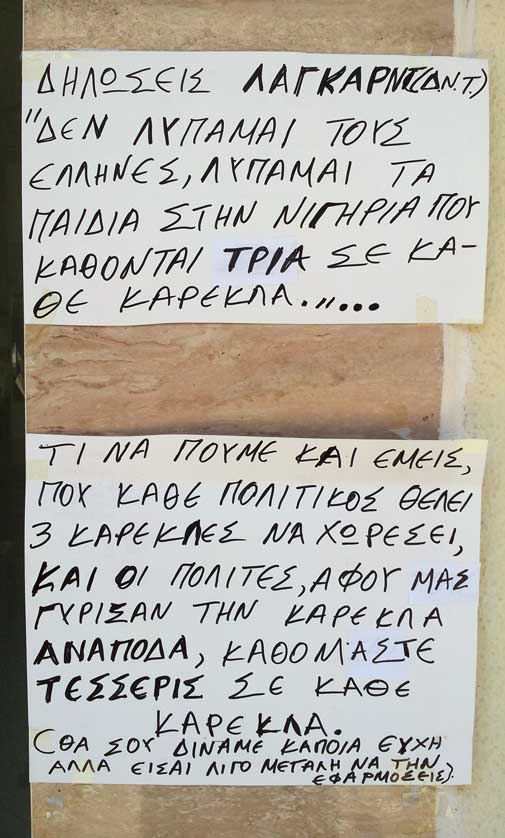 ΔΗΛΩΣΕΙΣ ΛΑΓΚΑΡΝΤ(Δ.Ν.Τ.)
"ΔΕΝ ΛΥΠΑΜΑΙ ΤΟΥΣ
ΕΛΛΗΝΕΣ, ΛΥΠΑΜΑΙ ΤΑ
ΠΑΙΔΙΑ ΣΤΗΝ ΝΙΓΗΡΙΑ ΠΟΥ
ΚΑΘΟΝΤΑΙ ΤΡΙΑ ΣΕ ΚΑ-
ΘΕ ΚΑΡΕΚΛΑ.,,....
ΤΙ ΝΑ ΠΟΥΜΕ ΚΑΙ ΕΜΕΙΣ,
ΠΟΥ ΚΑΘΕ ΠΟΛΙΤΙΚΟΣ ΘΕΛΕΙ
3 ΚΑΡΕΚΛΕΣ ΝΑ ΧΩΡΕΣΕΙ,
ΚΑΙ ΟΙ ΠΟΛΙΤΕΣ, ΑΦΟΥ ΜΑΣ
ΓΥΡΙΣΑΝ ΤΗΝ ΚΑΡΕΚΛΑ
ΑΝΑΠΟΔΑ, ΚΑΘΟΜΑΣΤΕ
ΤΕΣΣΕΡΙΣ ΣΕ ΚΑΘΕ
ΚΑΡΕΚΛΑ.
(ΘΑ ΣΟΥ ΔΙΝΑΜΕ ΚΑΠΟΙΑ ΕΥΧΗ
ΑΛΛΑ ΕΙΣΑΙ ΛΙΓΟ ΜΕΓΑΛΗ ΝΑ ΤΗΝ
ΕΦΑΡΜΟΣΕΙΣ).